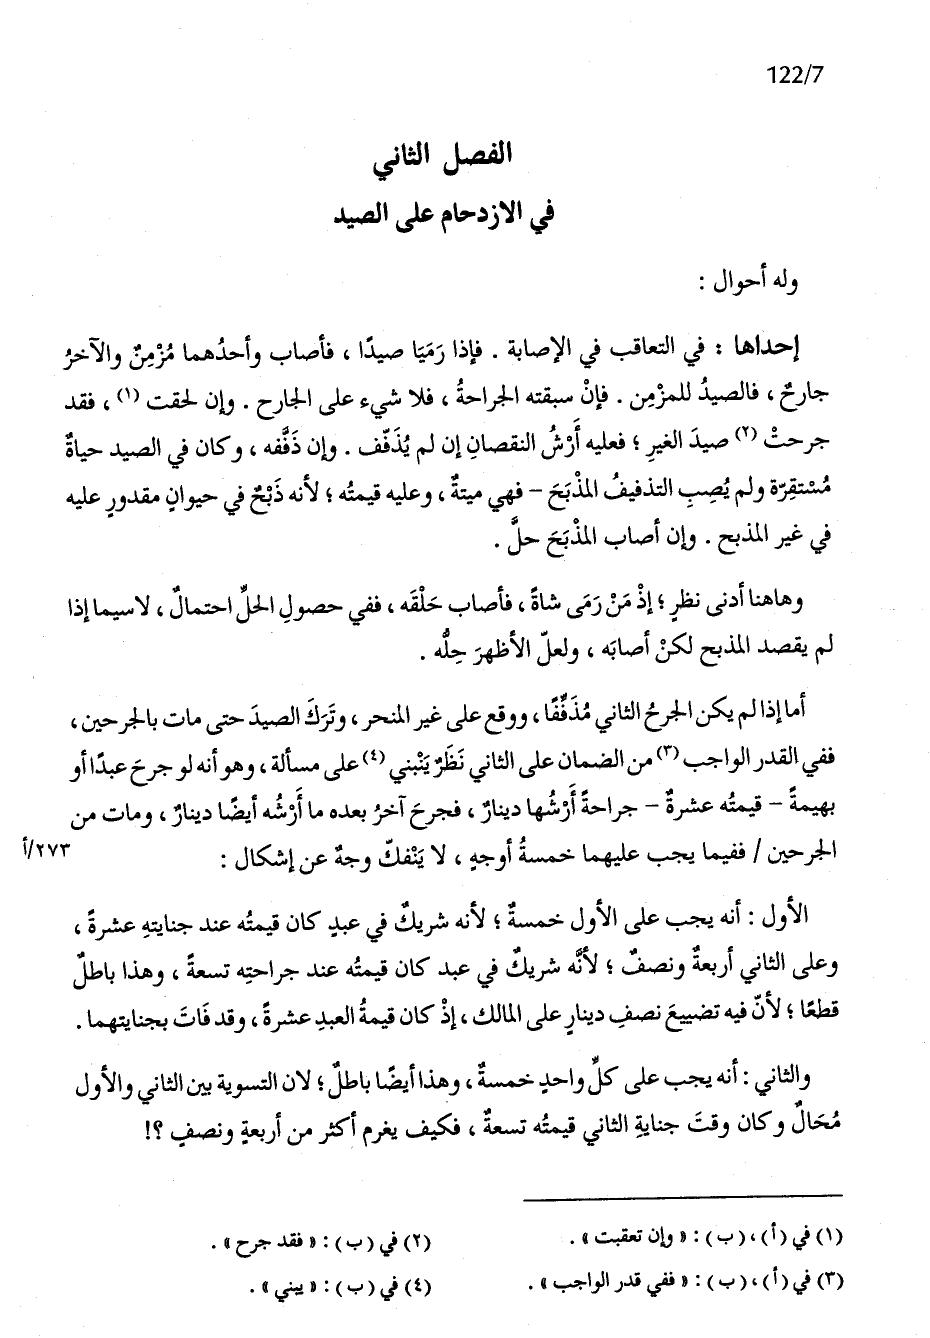 122/7
الفصل الثاني
في الازدحام على الصيد
وله أحوال :
إحداها : في التعاقب في الإصابة . فإذا رَمَيَا صيدًا ، فأصاب وأحدُهما مُزْمِنٌ والآخرُ
جارحٌ ، فالصيدُ للمزْمِن . فإنْ سبقته الجراحةُ ، فلا شيء على الجارح . وإن لحقت (١) ، فقد
جرحتْ (٢) صيدَ الغيرِ ؛ فعليه أَرْشُ النقصانِ إن لم يُذَفّف . وإن ذَفَّفه ، وكان في الصيد حياةٌ
مُسْتقِرّة ولم يُصِبِ التذفيفُ المذْبَحَ – فهي ميتةٌ ، وعليه قيمتُه ؛ لأنه ذَبْحٌ في حيوانٍ مقدورٍ عليه
في غير المذبح . وإن أصاب المذْبَحَ حلَّ .
وهاهنا أدنى نظرٍ ؛ إذْ مَنْ رَمَى شاةً ، فأصاب حَلْقَه ، ففي حصولِ الحلِّ احتمالٌ ، لاسيما إذا
لم يقصد المذبح لكنْ أصابَه ، ولعلّ الأظهرَ حِلُّه .
أما إذا لم يكن الجرحُ الثاني مُذَفِّفًا ، ووقع على غير المنحر ، وتَرَكَ الصيدَ حتى مات بالجرحين ،
ففي القدر الواجب (٣) من الضمان على الثاني نَظَرٌ يَنْبني (٤) على مسألة ، وهو أنه لو جرحَ عبدًا أو
بهيمةً – قيمتُه عشرةٌ – جراحةً أَرْشُها دينارٌ ، فجرحَ آخرُ بعده ما أَرْشُه أيضًا دينارٌ ، ومات من
الجرحين / ففيما يجب عليهما خمسةُ أوجهٍ ، لا يَنْفكّ وجهٌ عن إشكال :
٢٧٣/أ
الأول : أنه يجب على الأول خمسةٌ ؛ لأنه شريكٌ في عبدٍ كان قيمتُه عند جنايتهِ عشرةً ،
وعلى الثاني أربعةٌ ونصفٌ ؛ لأنَّه شريكٌ في عبد كان قيمتُه عند جراحتِه تسعةً ، وهذا باطلٌ
قطعًا ؛ لأنّ فيه تضييعَ نصفِ دينارٍ على المالك ، إذْ كان قيمةُ العبدِ عشرةً ، وقد فَاتَ بجنايتهما .
والثاني : أنه يجب على كلِّ واحدٍ خمسةٌ ، وهذا أيضًا باطلٌ ؛ لان التسوية بين الثاني والأول
مُحَالٌ وكان وقتَ جنايةِ الثاني قيمتُه تسعةٌ ، فكيف يغرم أكثر من أربعةٍ ونصفٍ ؟!
(١) في (أ) ، (ب) : « وإن تعقبت » .
(٢) في (ب) : « فقد جرح » .
(٣) في (أ) ، (ب) : « ففي قدر الواجب » .
(٤) في (ب) : « يبني » .